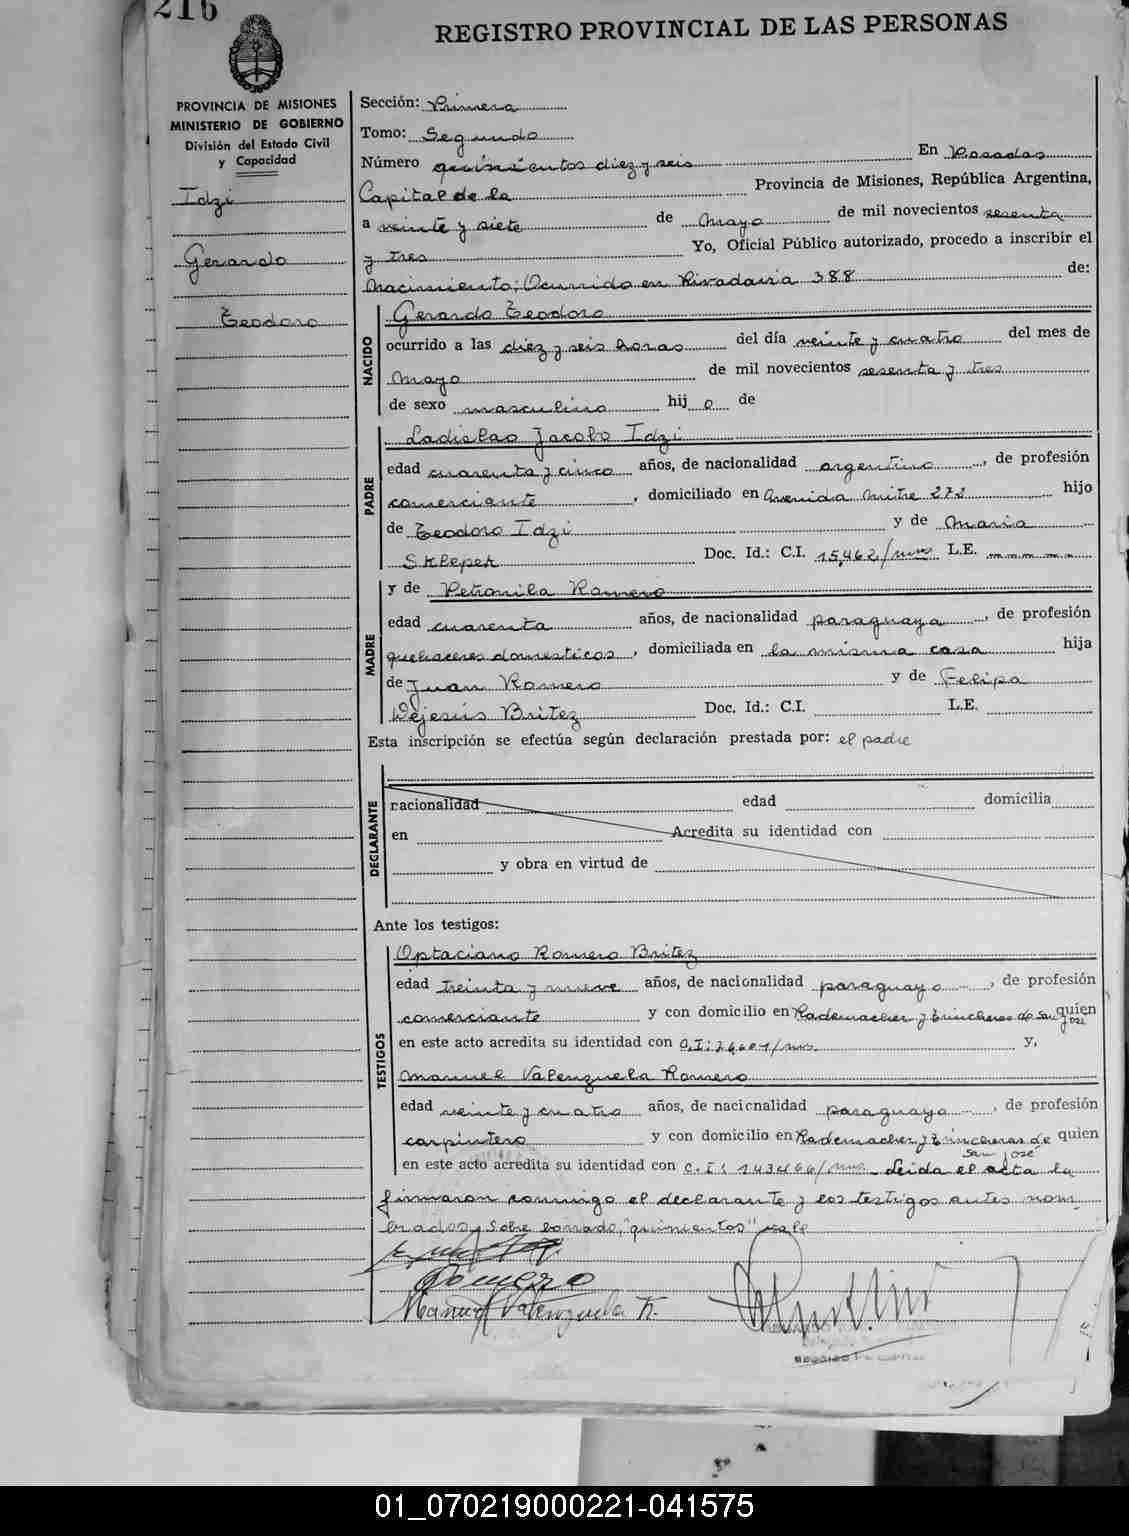 216
REGISTRO PROVINCIAL DE LAS PERSONAS
PROVINCIA DE MISIONES
MINISTERIO DE GOBIERNO
División del Estado Civil
y Capacidad
Idzi
Gerardo
Teodoro
Sección: Primera
Tomo: Segundo
Número quinientos diez y seis En Posadas
Capital de la Provincia de Misiones, República Argentina,
a veinte y siete de Mayo de mil novecientos sesenta
y tres Yo, Oficial Público autorizado, procedo a inscribir el
Nacimiento; Ocurrido en Rivadavia 388 de:
NACIDO
Gerardo Teodoro
ocurrido a las diez y seis horas del día veinte y cuatro del mes de
Mayo de mil novecientos sesenta y tres
de sexo masculino hijo de
PADRE
Ladislao Jacobo Idzi
edad cuarenta y cinco años, de nacionalidad argentino, de profesión
comerciante, domiciliado en Avenida Mitre 272 hijo
de Teodoro Idzi y de Maria
Sklepek Doc. Id.: C.I. 15,462/mns L.E.
MADRE
y de Petronila Romero
edad cuarenta años, de nacionalidad paraguaya, de profesión
quehaceres domesticos, domiciliada en la misma casa hija
de Juan Romero y de Felipa
Dejesús Britez Doc. Id.: C.I. L.E.
Esta inscripción se efectúa según declaración prestada por: el padre
DECLARANTE
nacionalidad edad domicilia
en Acredita su identidad con
y obra en virtud de
Ante los testigos:
TESTIGOS
Optaciano Romero Britez
edad treinta y nueve años, de nacionalidad paraguayo, de profesión
comerciante y con domicilio en Rademacher y Trincheras de San José quien
en este acto acredita su identidad con C.I: /mns. y,
Manuel Valenzuela Romero
edad veinte y cuatro años, de nacionalidad paraguayo, de profesión
carpintero y con domicilio en Rademacher y Trincheras de San José quien
en este acto acredita su identidad con C.I: 143466/mns. Leida el acta la
firmaron conmigo el declarante y los testigos antes nom
brados, Sobre borrado, "quinientos" vale
Romero
Manuel Valenzuela R.
01_070219000221-041575